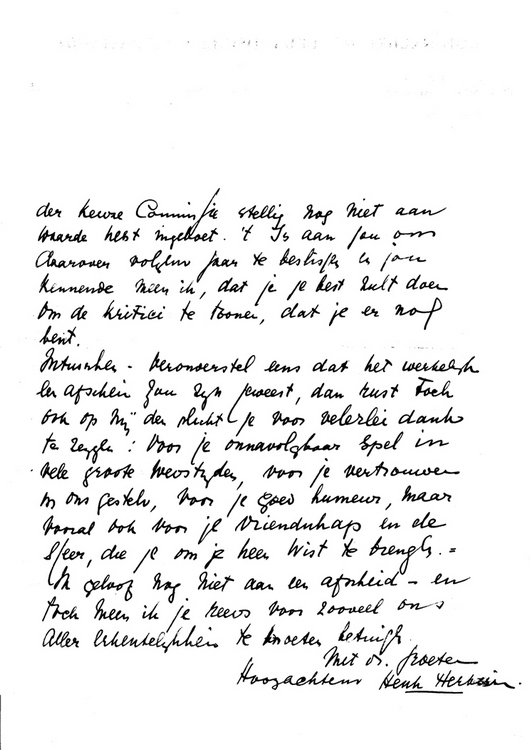 der keuze Commissie stellig nog niet aan
waarde hebt ingeboet. 't Is aan jou om
daarover volgend jaar te beslissen en jou
kennende meen ik, dat je je best zult doen
om de kritici te toonen, dat je er nog
bent.
Intusschen - veronderstel eens dat het werkelijk
een afscheid zou zijn geweest, dan rust toch
ook op mij den plicht je voor velerlei dank
te zeggen: Voor je onnavolgbaar spel in
vele groote wedstrijden, voor je vertrouwen
in ons gesteld, voor je goed humeur, maar
vooral ook voor je vriendschap en de
sfeer, die je om je heen wist te brengen. =
Ik geloof nog niet aan een afscheid - en
toch meen ik je reeds voor zooveel ons
aller erkentelijkheid te moeten betuigen.
Met de groeten
Hoogachtend Henk Herberts.